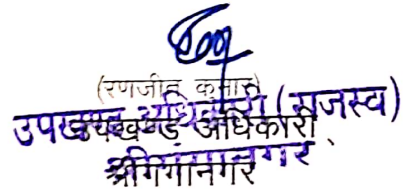 (रणजीत कुमार)
उपखण्ड अधिकारी (राजस्व)
उपखण्ड अधिकारी
श्रीगंगानगर